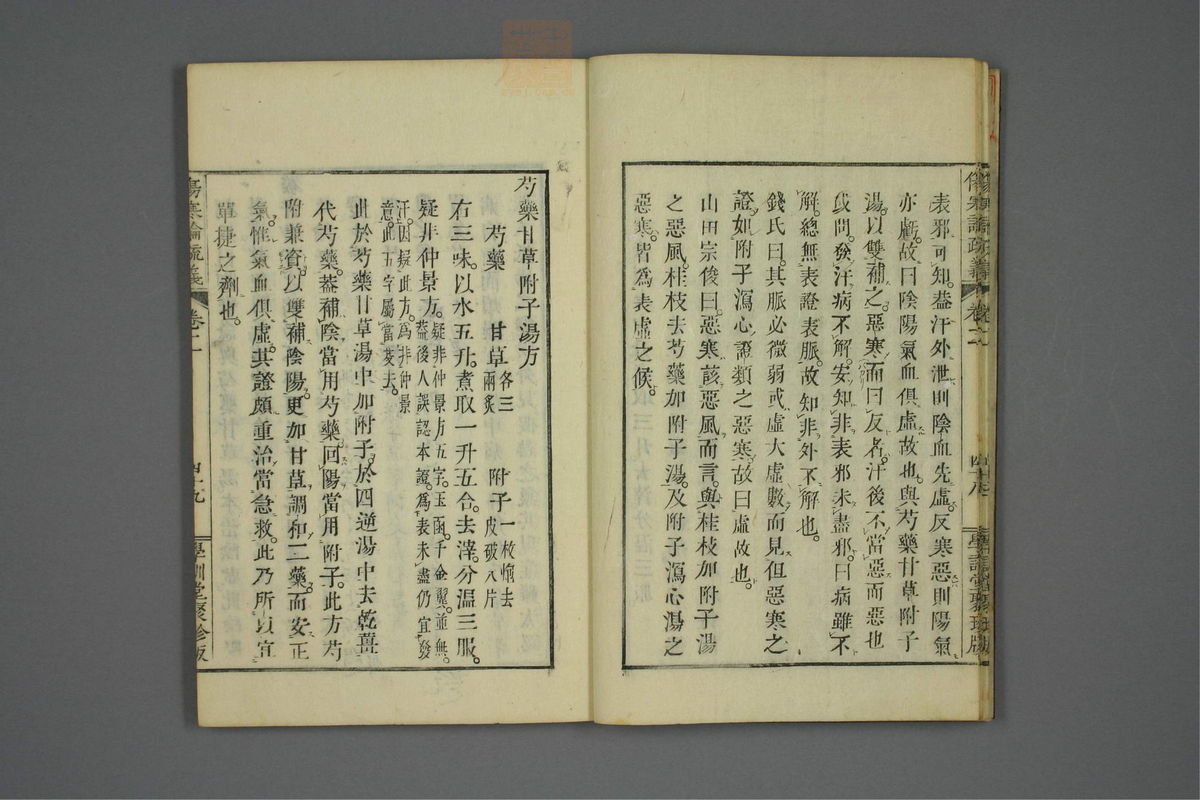 傷寒論疏義 卷之二 四十八 學訓堂聚珍版
表邪可知。蓋汗外泄則陰血先虛。反寒惡則陽氣
亦虧。故曰陰陽氣血俱虛故也。與芍藥甘草附子
湯。以雙補之。惡寒而曰反者。汗後不當惡而惡也
或問。發汗病不解。安知非表邪未盡邪。曰病雖不
解。總無表證表脈。故知非外不解也。
錢氏曰。其脈必微弱或虛大虛數而見但惡寒之
證。如附子瀉心證類之惡寒。故曰虛故也。
山田宗俊曰。惡寒該惡風而言。與桂枝加附子湯
之惡風。桂枝去芍藥加附子湯。及附子瀉心湯之
惡寒。皆爲表虛之候。
芍藥甘草附子湯方
芍藥 甘草各三兩炙 附子一枚炮去皮破八片
右三味。以水五升。煮取一升五合。去滓。分溫三服。
疑非仲景方。疑非仲景方五字。玉函。千金翼。並無。蓋後人誤認本證。爲表未盡仍宜發
汗。因疑此方。爲非仲景意。此五字屬當芟去。
此於芍藥甘草湯中加附子。於四逆湯中去乾薑
代芍藥。蓋補陰當用芍藥。回陽當用附子。此方芍
附兼資。以雙補陰陽。更加甘草調和二藥。而安正
氣。惟氣血俱虛。其證頗重治當急救。此乃所以宜
單捷之劑也。
傷寒論疏義 卷二 四十九 學訓堂聚珍版